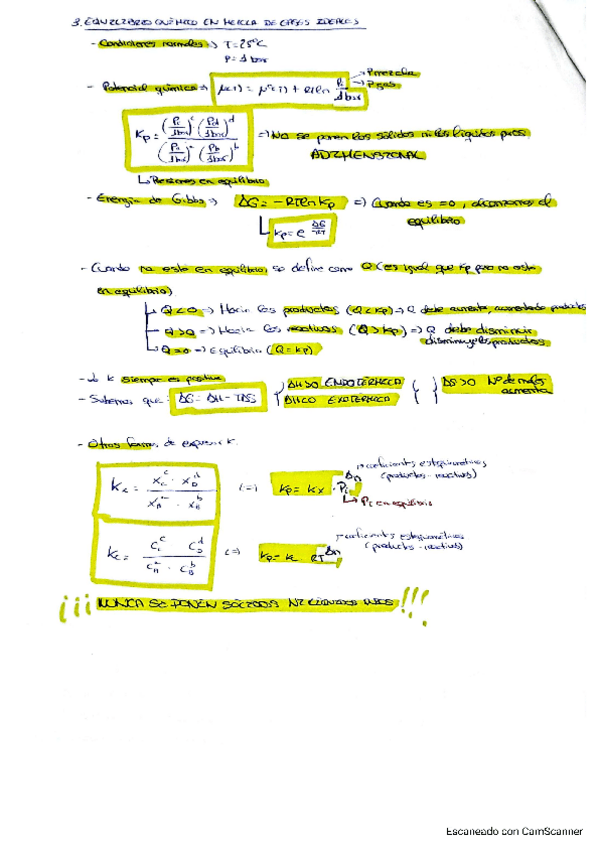 3. EQUILIBRIO QUÍMICO EN MEZCLA DE GASES IDEALES
- Condiciones normales => T = 25ºC
P = 1 bar
- Potencial químico => μ(T) = μº(T) + RTln Pi/1bar → P mezcla → P gas
Kp = (Pc/1bar)^c (Pd/1bar)^d / (Pa/1bar)^a (Pb/1bar)^b => No se ponen los sólidos ni los líquidos puros
ADIMENSIONAL
↳ Presiones en equilibrio
- Energía de Gibbs => ΔG = -RTln Kp => Cuando es = 0, alcanzamos el equilibrio
Kp = e^
- Cuando no está en equilibrio se define como Q (es igual que Kp pero no está
en equilibrio)
Q<0 => Hacia los productos (Q<Kp) → Q debe aumentar, aumentando productos
Q>0 => Hacia los reactivos (Q>Kp) => Q debe disminuir
disminuye los productos
Q=0 => Equilibrio (Q=Kp)
- La K siempre es positiva
- Sabemos que: ΔG = ΔH - TΔS { ΔH>0 ENDOTÉRMICA { } ΔS>0 Nº de moles aumenta
ΔH<0 EXOTÉRMICA
- Otras formas de expresar K.
→ coeficientes estequiométricos
(productos - reactivos)
Kx = Xc^c · Xd^d / Xa^a · Xb^b (=) Kp = Kx · P^Δn
↳ P en equilibrio
→ coeficientes estequiométricos
(productos - reactivos)
Kc = Cc^c Cd^d / Ca^a · Cb^b (=> Kp = Kc · RT^Δn
¡¡¡ NUNCA SE PONEN SÓLIDOS NI LÍQUIDOS PUROS !!!
Escaneado con CamScanner